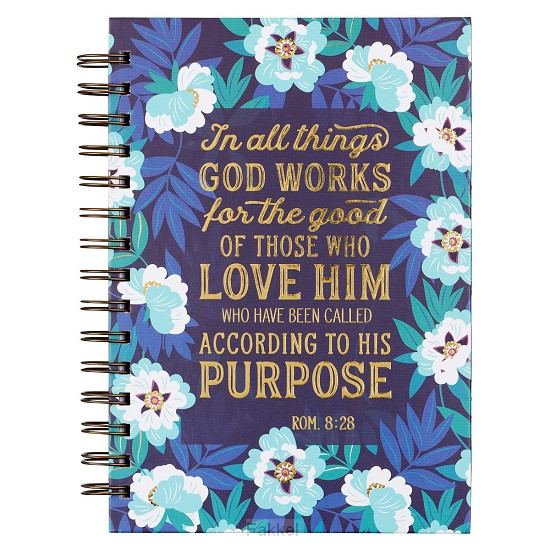 In all things
GOD WORKS
for the good
OF THOSE WHO
LOVE HIM
WHO HAVE BEEN CALLED
ACCORDING TO HIS
PURPOSE
ROM. 8:28
Fakkel